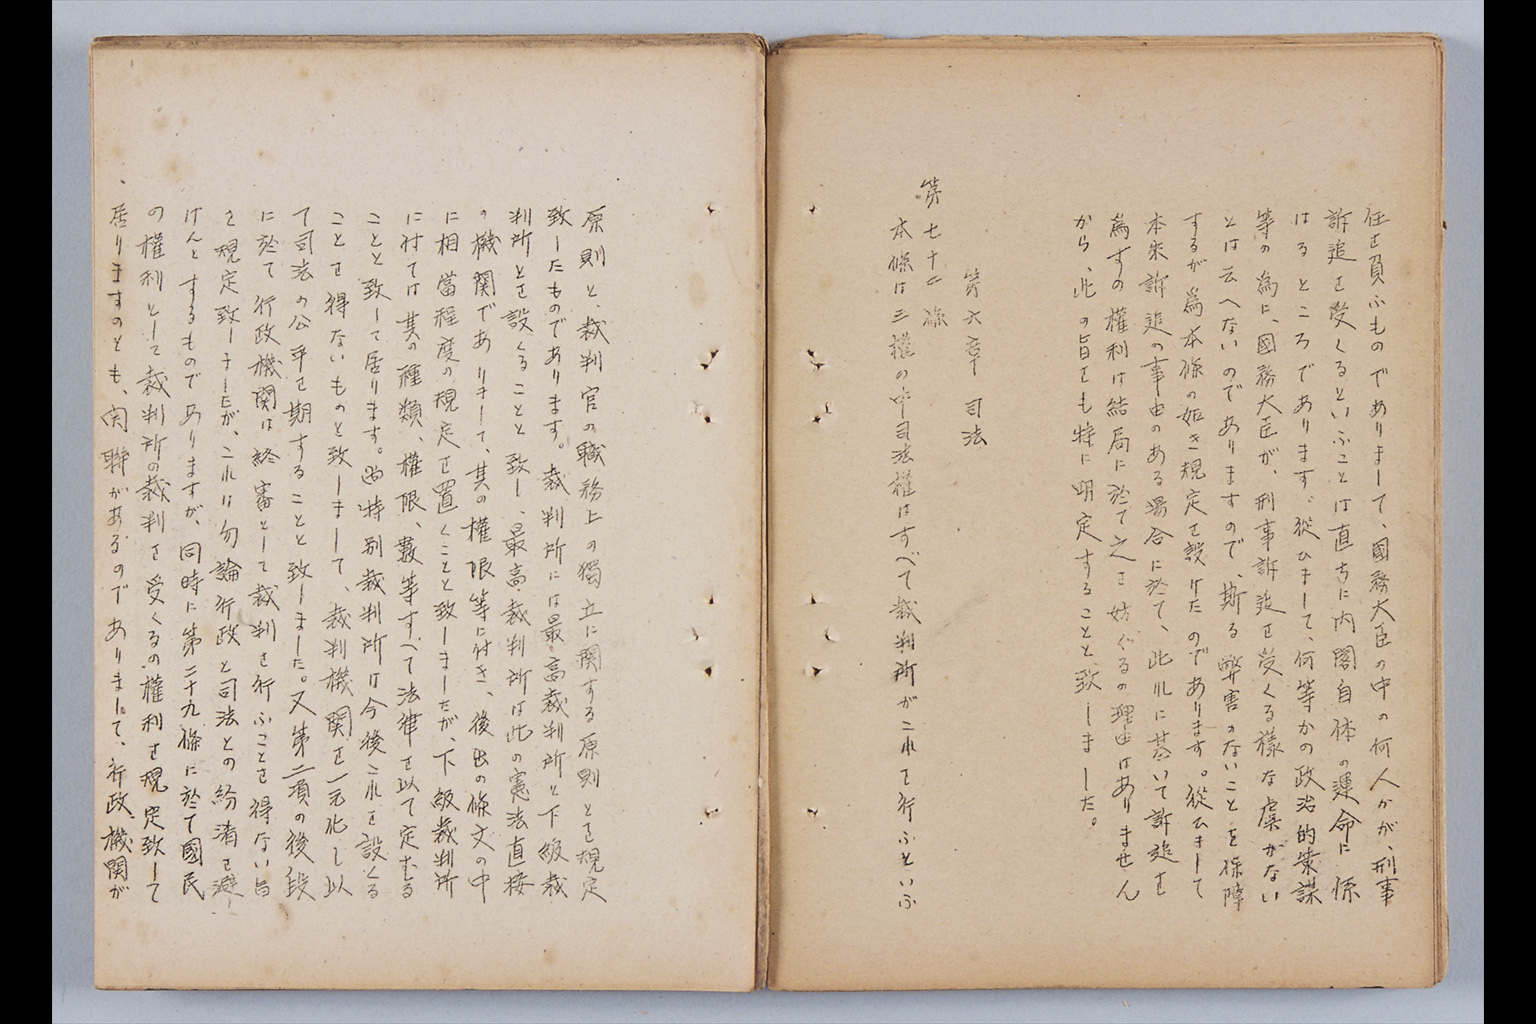 任を負ふものでありまして、國務大臣の中の何人かが、刑事
訴追を受くるといふことは直ちに内閣自体の運命に係
はるところであります。從ひまして、何等かの政治的策謀
等の為に、國務大臣が、刑事訴追を受くる様な虞がない
とは云へないのでありますので、斯る弊害のないことを保障
するが為本條の如き規定を設けたのであります。從ひまして
本来訴追の事由のある場合に於て、此れに基いて訴追を
為すの權利は結局に於て之を妨ぐるの理由はありません
から、此の旨をも特に明定することと致しました。
第六章 司法
第七十二條
本條は三權の中司法權はすべて裁判所がこれを行ふといふ
原則と裁判官の職務上の獨立に関する原則とを規定
致したものであります。裁判所には最高裁判所と下級裁
判所とを設くることと致し、最高裁判所は此の憲法直接
の機関でありまして、其の權限等に付き、後出の條文の中
に相當程度の規定を置くことと致しましたが、下級裁判所
に付ては其の種類、權限、數等すべて法律を以て定むる
ことと致して居ります。尚特別裁判所は今後これを設くる
ことを得ないものと致しまして、裁判機関を一元化し以
て司法の公平を期することと致しました。又第二項の後段
に於て行政機関は終審として裁判を行ふことを得ない旨
を規定致しましたが、これは勿論行政と司法との紛淆を避
けんとするものでありますが、同時に第二十九條に於て國民
の權利として裁判所の裁判を受くるの權利を規定致して
居りますのとも、関聯があるのでありまして、行政機関が